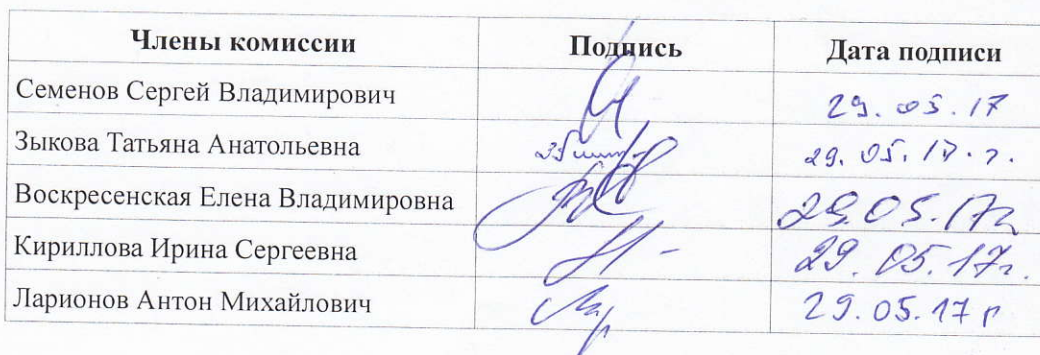 Члены комиссии Подпись Дата подписи
Семенов Сергей Владимирович 29.05.17
Зыкова Татьяна Анатольевна 29.05.17.г.
Воскресенская Елена Владимировна 29.05.17г
Кириллова Ирина Сергеевна 29.05.17г.
Ларионов Антон Михайлович 29.05.17 г